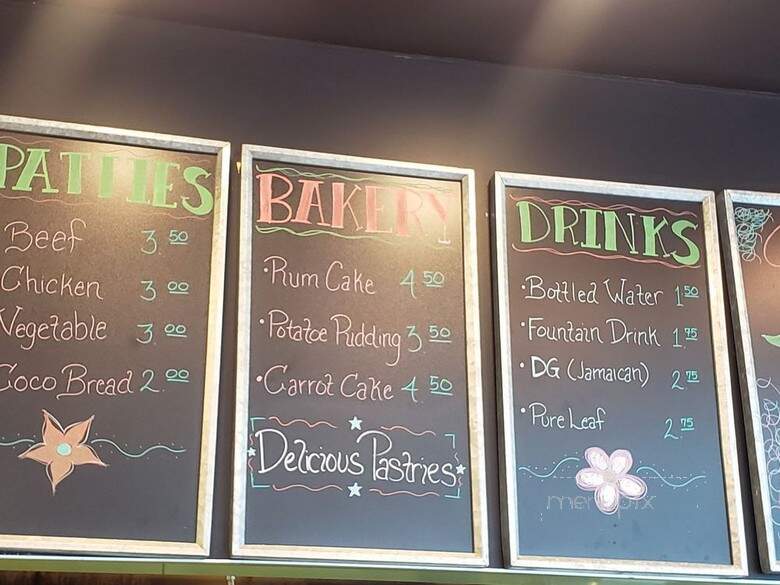 PATTIES
Beef 3.50
Chicken 3.00
Vegetable 3.00
Coco Bread 2.00
BAKERY
•Rum Cake 4.50
•Potatoe Pudding 3.50
•Carrot Cake 4.50
Delicious Pastries
DRINKS
•Bottled Water 1.50
•Fountain Drink 1.75
•DG (Jamaican) 2.75
•Pure Leaf 2.75
menupix